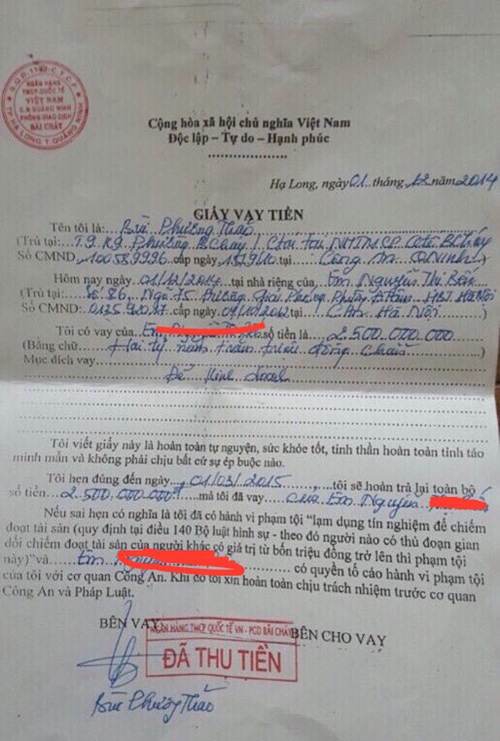 S.G.D: 1103-C.T.C.P
NGÂN HÀNG
TMCP QUỐC TẾ
VIỆT NAM
C.N QUẢNG NINH
PHÒNG GIAO DỊCH
BÃI CHÁY
TP. HẠ LONG T. QUẢNG NINH
Cộng hòa xã hội chủ nghĩa Việt Nam
Độc lập – Tự do – Hạnh phúc
Hạ Long, ngày 01 tháng 12 năm 2014
GIẤY VAY TIỀN
Tên tôi là: Bùi Phương Thảo
(Trú tại: T.9.K9 Phường B.Cháy
Số CMND: 100589996 cấp ngày tại: Công An Q.Ninh)
Hôm nay ngày 01/12/2014 tại nhà riêng của Em Nguyễn Thị
(Trú tại: Số 86, Hà Nội
Số CMND: cấp ngày 2012 tại: C.An Hà Nội)
Tôi có vay của Em số tiền là 2.500.000.000
(Bằng chữ Hai tỷ năm trăm triệu đồng chẵn
Mục đích vay
Để kinh doanh
Tôi viết giấy này là hoàn toàn tự nguyện, sức khỏe tốt, tinh thần hoàn toàn tỉnh táo
minh mẫn và không phải chịu bất cứ sự ép buộc nào.
Tôi hẹn đúng đến ngày 01/03/2015 tôi sẽ hoàn trả lại toàn bộ
số tiền 2.500.000.000đ mà tôi đã vay của Em Nguyễn
Nếu sai hẹn có nghĩa là tôi đã có hành vi phạm tội “lạm dụng tín nghiệm để chiếm
đoạt tài sản (quy định tại điều 140 Bộ luật hình sự - theo đó người nào có thủ đoạn gian
dối chiếm đoạt tài sản của người khác có giá trị từ bốn triệu đồng trở lên thì phạm tội
này)”và Em có quyền tố cáo hành vi phạm tội
của tôi với cơ quan Công An. Khi đó tôi xin hoàn toàn chịu trách nhiệm trước cơ quan
Công An và Pháp Luật.
BÊN VAY BÊN CHO VAY
NGÂN HÀNG TMCP QUỐC TẾ VN - PGD BÃI CHÁY
ĐÃ THU TIỀN
Bùi Phương Thảo